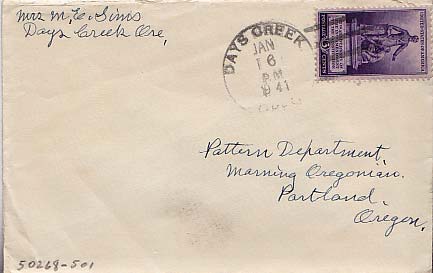 Mrs M. E. Sims
Days Creek Ore,
DAYS CREEK
JAN
16
PM
1941
Pattern Department,
Morning Oregonian.
Portland,
Oregon,
50268-501